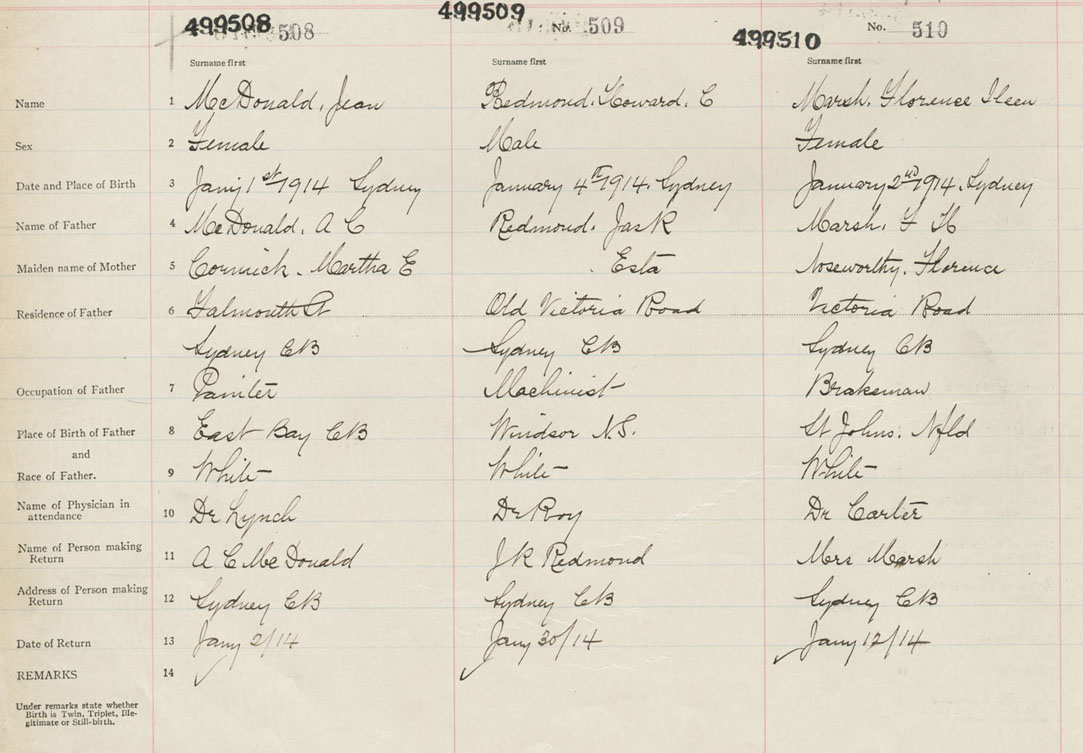 499508 508
499509 No. 509
499510 No. 510
Surname first Surname first Surname first
Name 1 McDonald, Jean Redmond. Howard. C Marsh. Florence Ileen
Sex 2 Female Male Female
Date and Place of Birth 3 Jany 1st 1914 Sydney January 4th 1914. Sydney January 2nd 1914. Sydney
Name of Father 4 McDonald. A C Redmond. Jas R Marsh. F H
Maiden name of Mother 5 Cormick. Martha E . Esta Noseworthy. Florence
Residence of Father 6 Falmouth St Old Victoria Road Victoria Road
Sydney CB Sydney CB Sydney CB
Occupation of Father 7 Painter Machinist Brakeman
Place of Birth of Father 8 East Bay CB Windsor N.S. St Johns. Nfld
and
Race of Father. 9 White White White
Name of Physician in
attendance 10 Dr Lynch Dr Roy Dr Carter
Name of Person making
Return 11 A C McDonald J R Redmond Mrs Marsh
Address of Person making
Return 12 Sydney CB Sydney CB Sydney CB
Date of Return 13 Jany 2/14 Jany 30/14 Jany 12/14
REMARKS 14
Under remarks state whether
Birth is Twin, Triplet, Ille-
gitimate or Still-birth.